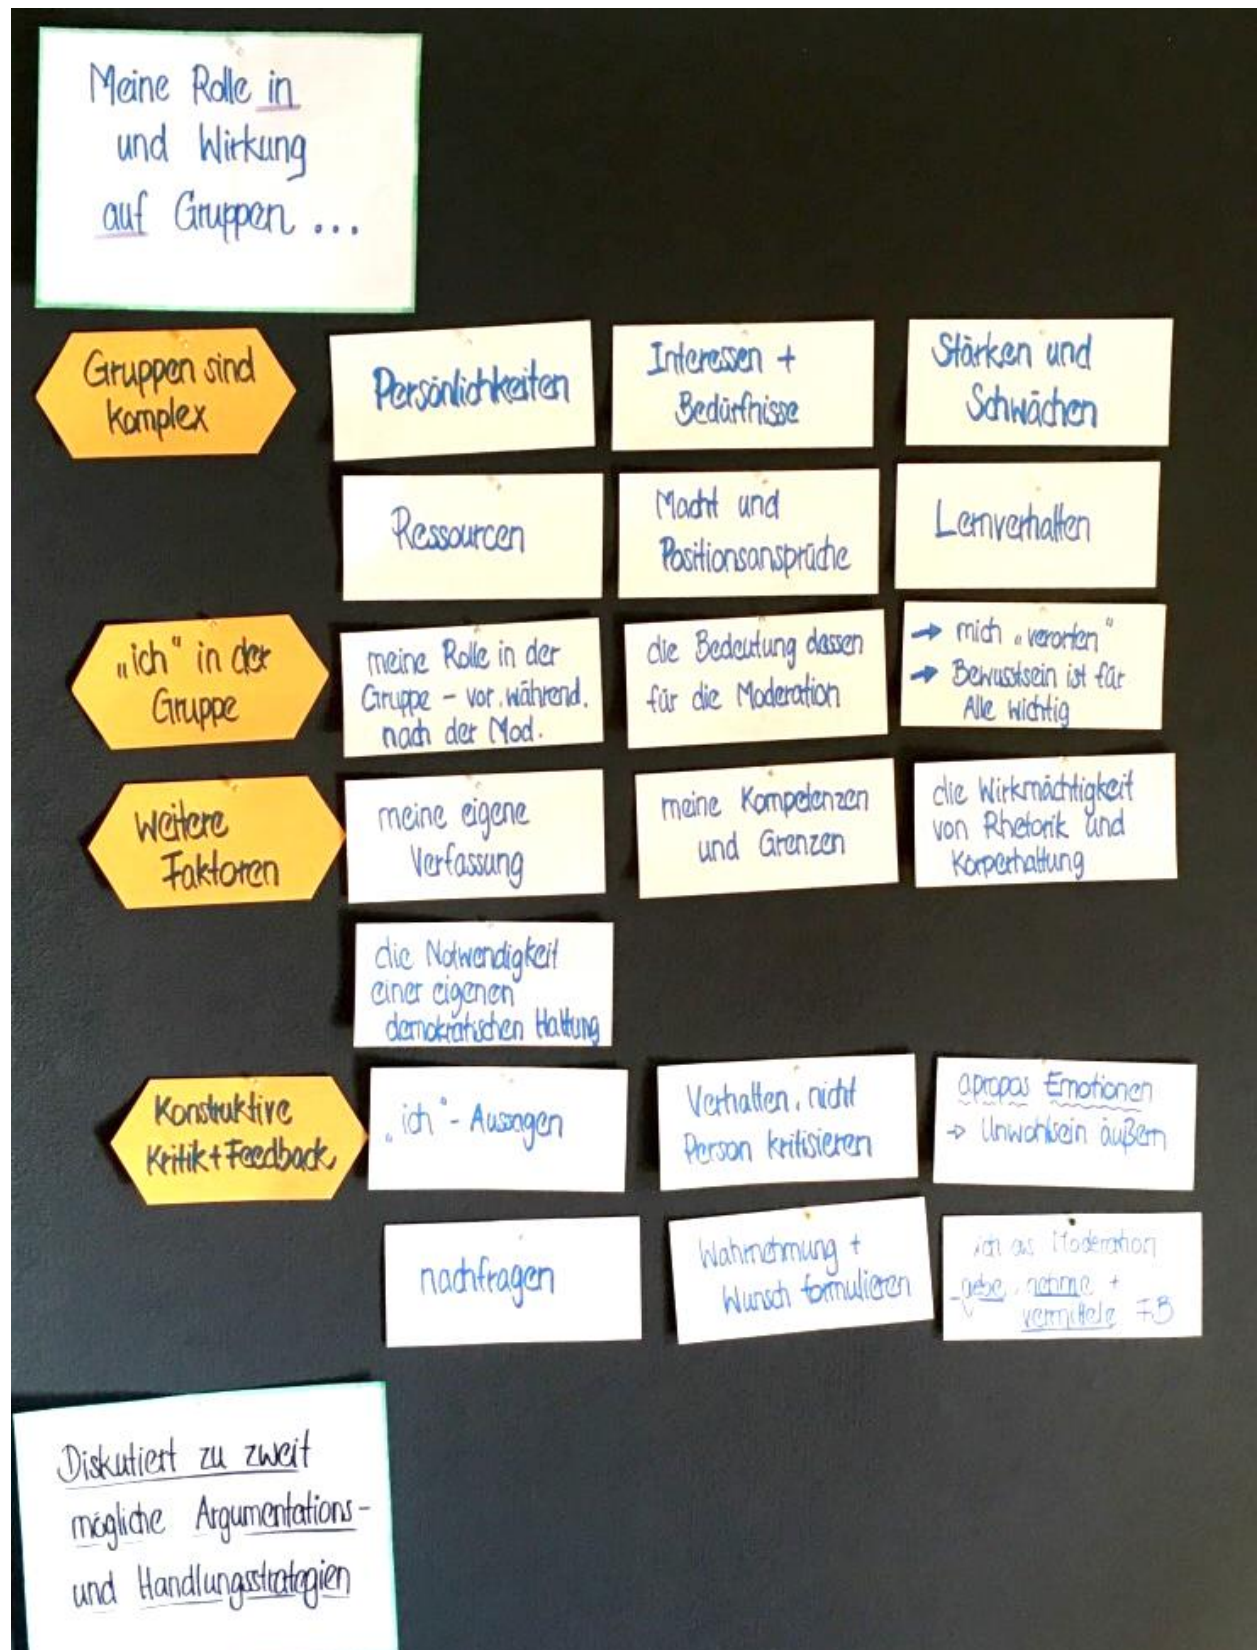 Meine Rolle in
und Wirkung
auf Gruppen ...
Gruppen sind
komplex
Persönlichkeiten
Interessen +
Bedürfnisse
Stärken und
Schwächen
Ressourcen
Macht und
Positionsansprüche
Lernverhalten
„ich" in der
Gruppe
meine Rolle in der
Gruppe - vor, während,
nach der Mod.
die Bedeutung dessen
für die Moderation
→ mich „verorten"
→ Bewusstsein ist für
Alle wichtig
Weitere
Faktoren
meine eigene
Verfassung
meine Kompetenzen
und Grenzen
die Wirkmächtigkeit
von Rhetorik und
Körperhaltung
die Notwendigkeit
einer eigenen
demokratischen Haltung
Konstruktive
Kritik + Feedback
„ich" - Aussagen
Verhalten, nicht
Person kritisieren
apropos Emotionen
→ Unwohlsein äußern
nachfragen
Wahrnehmung +
Wunsch formulieren
ich als Moderation
- gebe, nehme +
vermittele FB
Diskutiert zu zweit
mögliche Argumentations-
und Handlungsstrategien